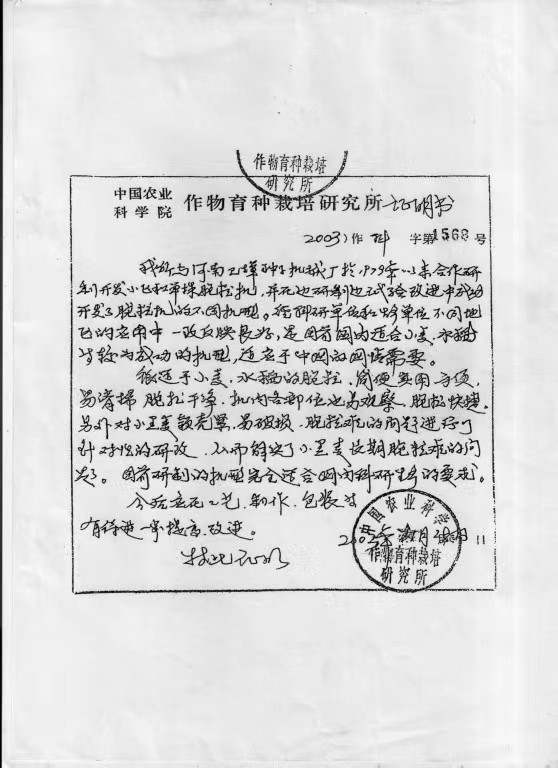 作物育种栽培
研究所
中国农业
科学院 作物育种栽培研究所证明书
2003)作 科 字第1568号
我所与河南 种子机械厂于1979年以来合作研
制开发小区和单株脱粒机,并在边研制边试验改进中成功
开发了脱粒机的不同机型。经科研单位和 单位不同地
区的应用中一致反映良好,是目前国内适合小麦、水稻
较为成功的机型,适应于中国的国情需要。
很适于小麦、水稻的脱粒,简便实用方便,
易清扫 脱粒干净,机内各部位也易观察、脱粒快捷
另外对小黑麦 颖壳 、易破损、脱粒难的问题进行了
针对性的研改,从而解决了小黑麦长期脱粒难的问
题。目前研制的机型完全适合国内科研生产的要求。
今后应在工艺、制作、包装
有待进一步提高、改进。
特此证明
2003年 月 日
中国农业科学院
作物育种栽培
研究所